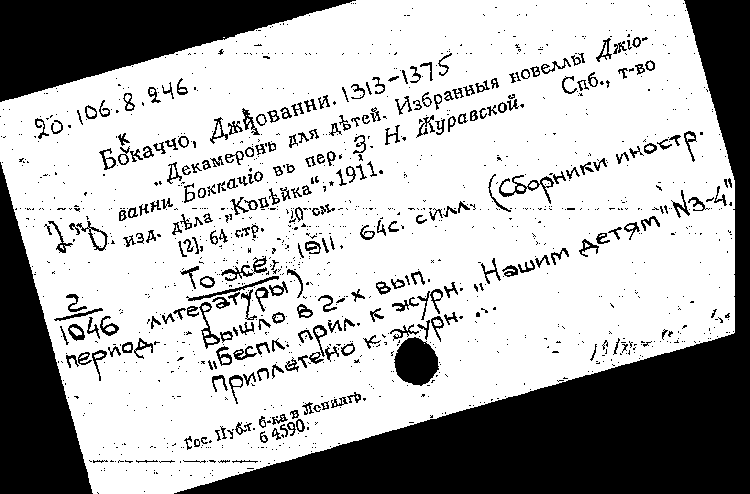 20.106.8.246.
Боккаччо, Джованни. 1313-1375
„Декамеронъ для дѣтей. Избранныя новеллы Джіо-
ванни Боккачіо въ пер. З. Н. Журавской. Спб., т-во
изд. дѣла „Копѣйка“, 1911.
[2], 64 стр. 20 см.
То же. 1911. 64с. с илл. (Сборники иностр.
литературы).
2
1046
период.
Вышло в 2-х вып.
„Беспл. прил. к журн. „Нашим детям" N3-4".
Приплетено к журн. ...
Гос. Публ. б-ка в Ленингр.
б 4590.